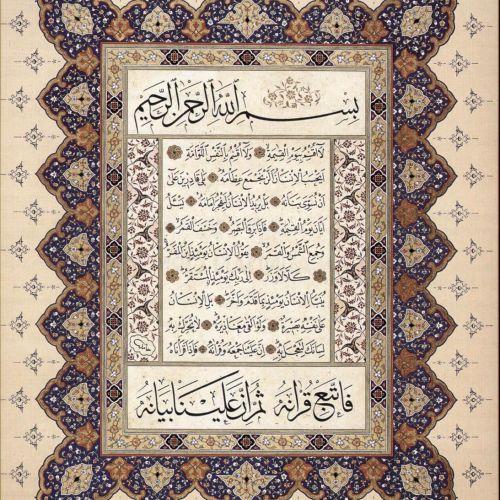 بسم الله الرحمن الرحيم
لا أقسم بيوم القيمة ولا أقسم بالنفس اللوامة
أيحسب الإنسان ألن نجمع عظامه بلى قادرين على
أن نسوي بنانه بل يريد الإنسان ليفجر أمامه يسئل
أيان يوم القيمة فإذا برق البصر وخسف القمر
وجمع الشمس والقمر يقول الإنسان يومئذ أين المفر
كلا لا وزر إلى ربك يومئذ المستقر
ينبأ الإنسان يومئذ بما قدم وأخر بل الإنسان
على نفسه بصيرة ولو ألقى معاذيره لا تحرك به
لسانك لتعجل به إن علينا جمعه وقرانه فإذا قرأناه
فاتبع قرانه ثم إن علينا بيانه